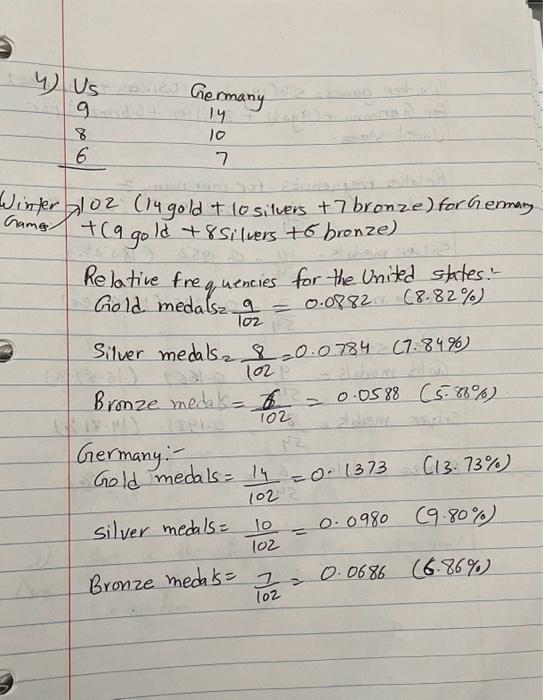 4) US Germany
9 14
8 10
6 7
Winter Games → 102 (14 gold + 10 silvers + 7 bronze) for Germany
+ (9 gold + 8 silvers + 6 bronze)
Relative frequencies for the United states:-
Gold medals = 9/102 = 0.0882 (8.82%)
Silver medals = 8/102 = 0.0784 (7.84%)
Bronze medals = 6/102 = 0.0588 (5.88%)
Germany:-
Gold medals = 14/102 = 0.1373 (13.73%)
silver medals = 10/102 = 0.0980 (9.80%)
Bronze medals = 7/102 = 0.0686 (6.86%)